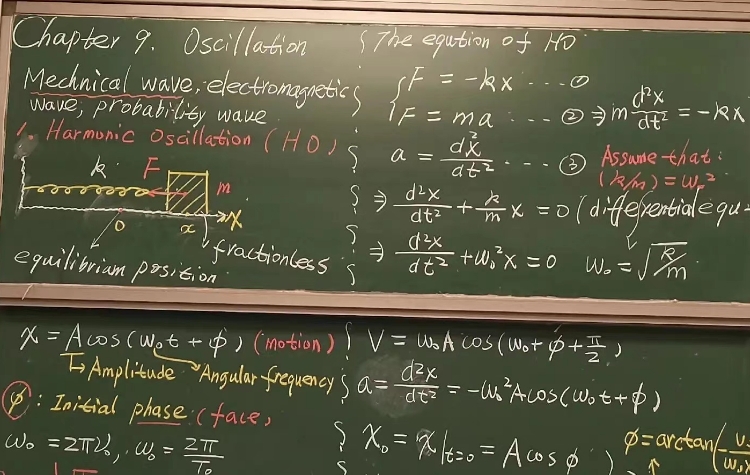 Chapter 9. Oscillation
Mechnical wave, electromagnetic
wave, probability wave
1. Harmonic Oscillation (HO)
k F m
0 x X
equilibrium position
fractionless
The eqution of HO
F = -kx ---- ①
F = ma ---- ② ⇒ m d²x/dt² = -kx
a = d²x/dt² ---- ③ Assume that:
(k/m) = ω₀²
⇒ d²x/dt² + k/m x = 0 (differential equ
⇒ d²x/dt² + ω₀²x = 0 ω₀ = √(k/m)
x = A cos(ω₀t + φ) (motion)
↳ Amplitude Angular frequency
φ: Initial phase (face,
ω₀ = 2πν₀, ω₀ = 2π/T₀
V = ω₀A cos(ω₀t + φ + π/2)
a = d²x/dt² = -ω₀²A cos(ω₀t + φ)
x₀ = x|t=0 = A cos φ
φ = arctan(-